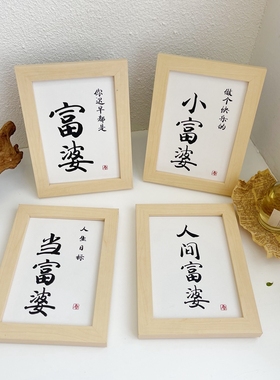 你迟早都是
富婆
做个快乐的
小富婆
人生目标
当富婆
人间富婆